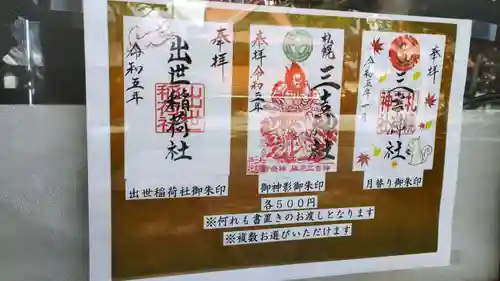 奉拝
出世稲荷社
令和五年
出世稲荷社御朱印
奉拝
札幌
三吉神社
令和五年
御神影御朱印
各500円
奉拝
三吉神社
令和五年
月替り御朱印
※何れも書置きのお渡しとなります
※複数お選びいただけます